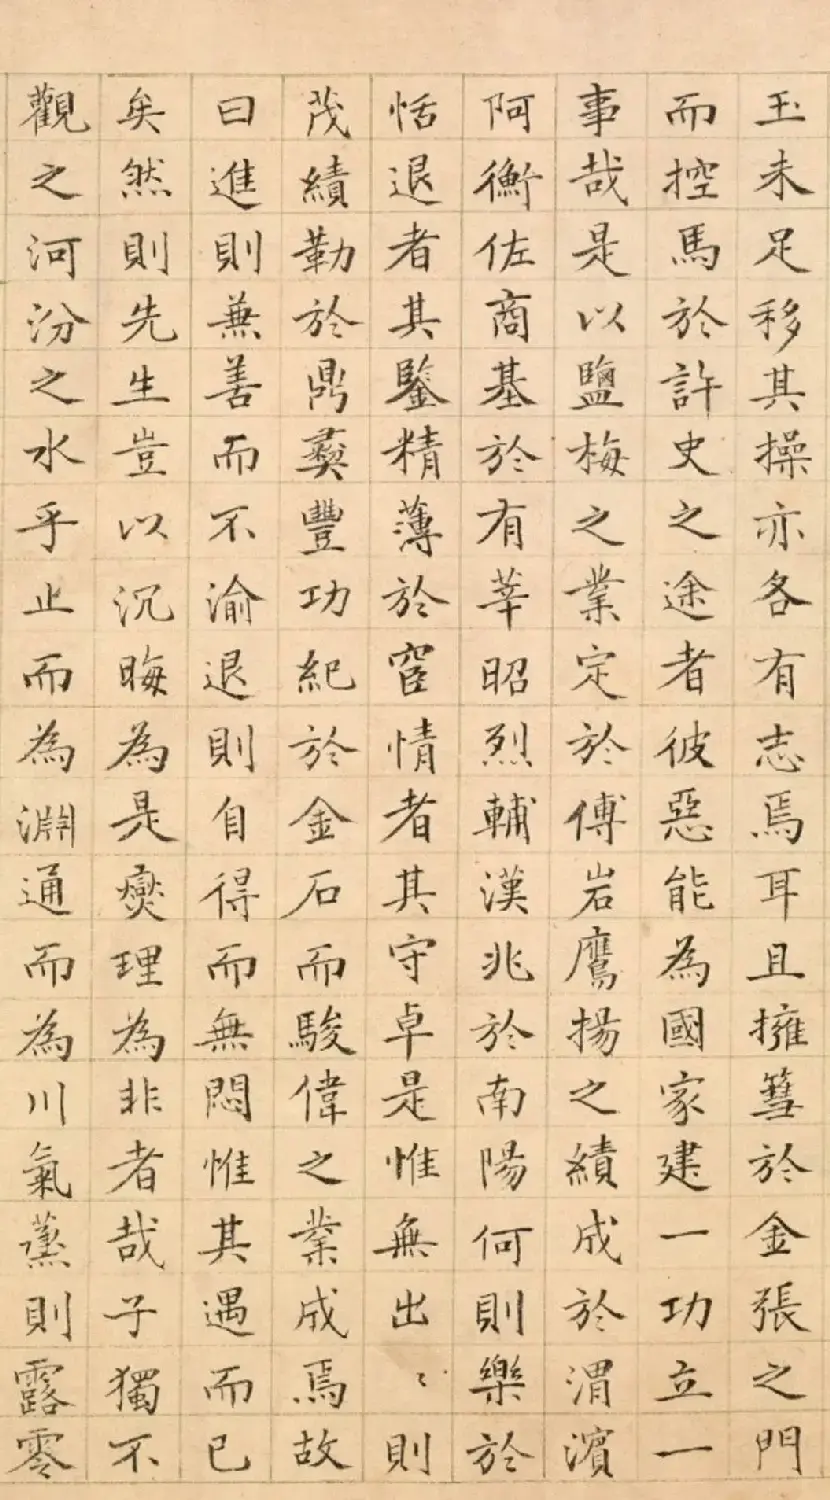 玉未足移其操亦各有志焉耳且擁篲於金張之門
而控馬於許史之途者彼惡能為國家建一功立一
事哉是以鹽梅之業定於傅岩鷹揚之績成於渭濱
阿衡佐商基於有莘昭烈輔漢兆於南陽何則樂於
恬退者其鑒精薄於宦情者其守卓是惟無出〻則
茂績勒於鼎彝豐功紀於金石而駿偉之業成焉故
曰進則兼善而不渝退則自得而無悶惟其遇而已
矣然則先生豈以沉晦為是爕理為非者哉子獨不
觀之河汾之水乎止而為淵通而為川氣蒸則露零